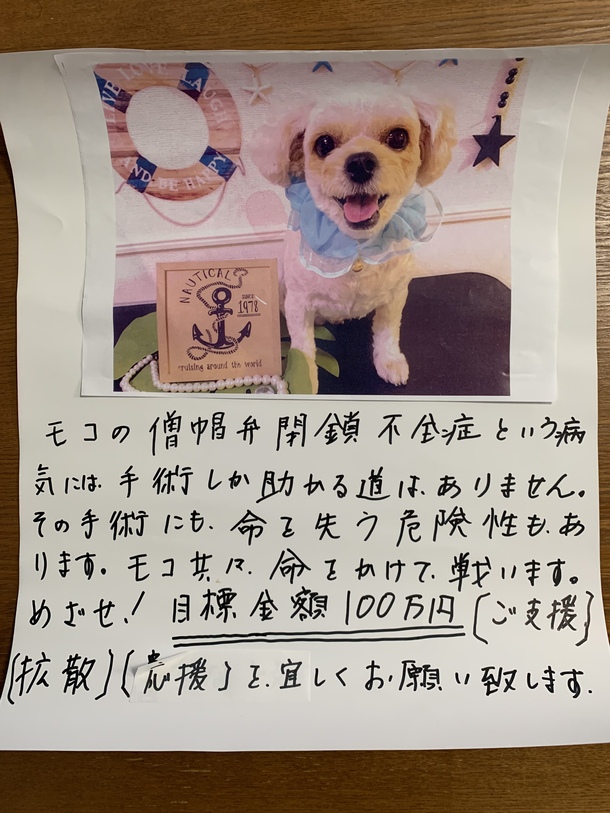 LIVE LOVE LAUGH
AND BE HAPPY
NAUTICAL
SINCE
1978
ruising around the world
モコの僧帽弁閉鎖不全症という病
気には手術しか助かる道はありません。
その手術にも、命を失う危険性もあ
ります。モコ共々、命をかけて戦います。
めざせ!目標金額100万円[ご支援]
[拡散][応援]を、宜しくお願い致します.